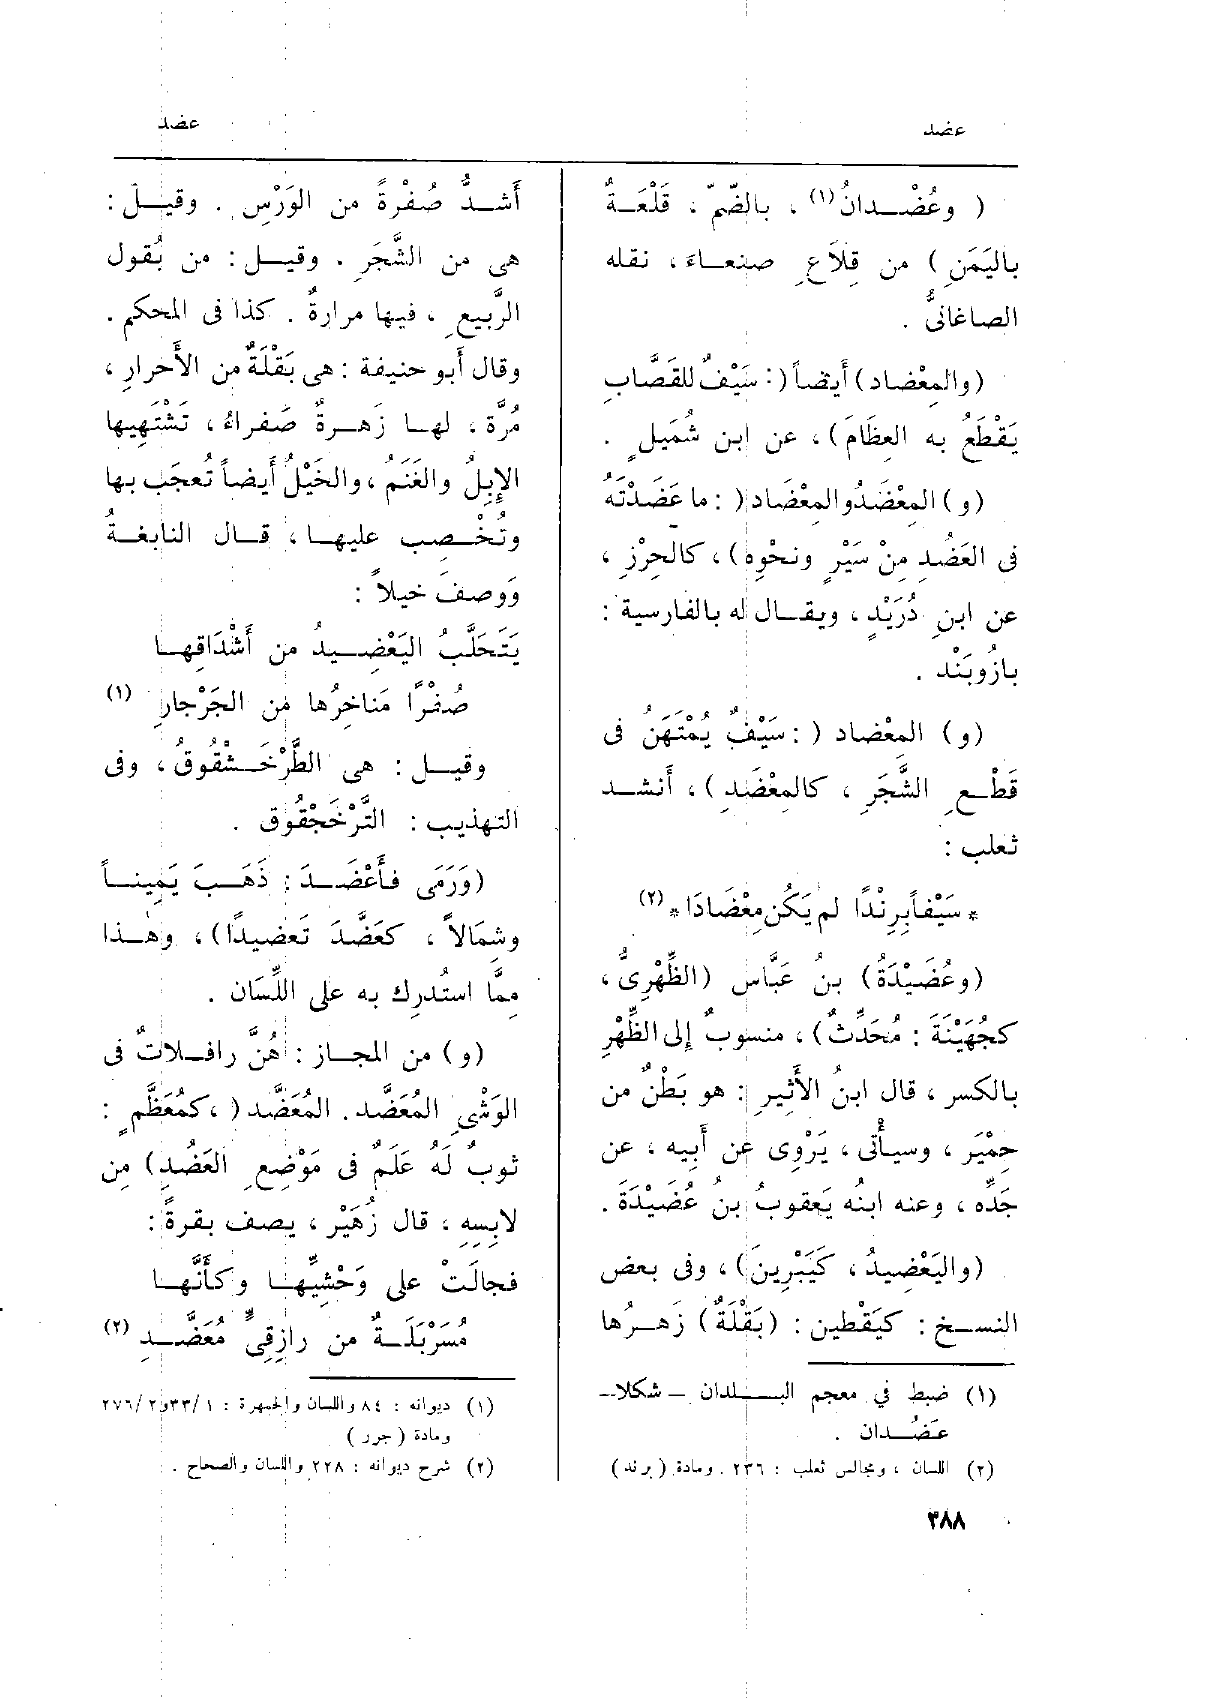 عضد
عضد
( وعُضْدانُ(١) ، بالضّمّ ، قَلْعَةٌ
باليَمَنِ ) من قِلاَعِ صنعاءَ ، نقله
الصاغانىُّ .
(والمِعْضاد) أيضاً (: سَيْفٌ للقَصَّابِ
يَقْطَعُ به العِظَامَ) ، عن ابن شُمَيلٍ .
(و) المِعْضَدُوالمِعْضَاد ( : ما عَضَدْتَه
فى العَضُدِ مِنْ سَيْرٍ ونحْوِه) ، كالحِرْزِ ،
عن ابنِ دُرَيْدٍ ، ويقال له بالفارسية :
بازُوبَنْد .
(و) المِعْضاد ( : سَيْفٌ يُمْتَهَنُ فى
قَطْعِ الشَّجَرِ ، كالمِعْضَدِ ) ، أنشد
ثعلب :
* سَيْفاًبِرِنْدًا لم يَكُن مِعْضَادَا * (٢)
(وعُضَيْدَةُ) بنُ عَبَّاس (الظِّهْرِىُّ ،
كجُهَيْنَةَ : مُحَدِّثٌ) ، منسوبٌ إلى الظِّهْرِ
بالكسر ، قال ابنُ الأَثِيرِ : هو بَطْنٌ من
حِمْيَر ، وسيأْتى ، يَرْوِى عن أَبيه ، عن
جَدِّه ، وعنه ابنُه يَعقوبُ بنُ عُضَيْدَةَ .
(واليَعْضِيدُ ، كَيَبْرِينَ) ، وفى بعض
النسخ : كيَقْطين : (بَقْلَةٌ) زَهرُها
(١) ضبط في معجم البلدان – شكلا –
عَضُدان .
(٢) اللسان ، ومجالس ثعلب : ٢٣٦ . ومادة ( برند )
أَشدُّ صُفْرةً من الوَرْسِ . وقيل :
هى من الشَّجَرِ . وقيل : من بُقول
الرَّبيعِ ، فيها مرارةٌ . كذا فى المحكم .
وقال أَبو حنيفة : هى بَقْلَةٌ من الأَحرارِ ،
مُرَّة ، لها زَهرةٌ صَفراءُ ، تَشْتَهِيها
الإِبِلُ والغَنَمُ ، والخَيْلُ أَيضاً تُعجَب بها
وتُخْصِب عليها ، قال النابغةُ
وَوصفَ خيلاً :
يَتَحَلَّبُ اليَعْضِيدُ من أَشْدَاقِها
صُفْرًا مَناخِرُها من الجَرْجارِ (١)
وقيل : هى الطَّرْخَشْقُوقُ ، وفى
التهذيب : التَّرْخَجْقُوق .
(وَرَمَى فأَعْضَدَ : ذَهَبَ يَمِيناً
وشِمَالاً ، كعَضَّدَ تَعضيدًا) ، وهذا
مِمَّا استُدرِك به على اللِّسَان .
(و) من المجاز : هُنَّ رافلاتٌ فى
الوَشْىِ المُعَضَّد . المُعَضَّد ( ، كمُعَظَّمٍ :
ثوبٌ لَهُ عَلَمٌ فى مَوْضِعِ العَضُدِ) مِن
لابِسِهِ ، قال زُهَيْر ، يصف بقرةً :
فجالَتْ على وَحْشِيِّها وكأَنَّها
مُسَرْبَلَةٌ من رازِقِىٍّ مُعَضَّدِ (٢)
(١) ديوانه : ٨٤ واللسان والجمهرة : ١ /٣٣و٢ /٢٧٦
ومادة ( جرر )
(٢) شرح ديوانه : ٢٢٨ واللسان والصحاح .
٣٨٨